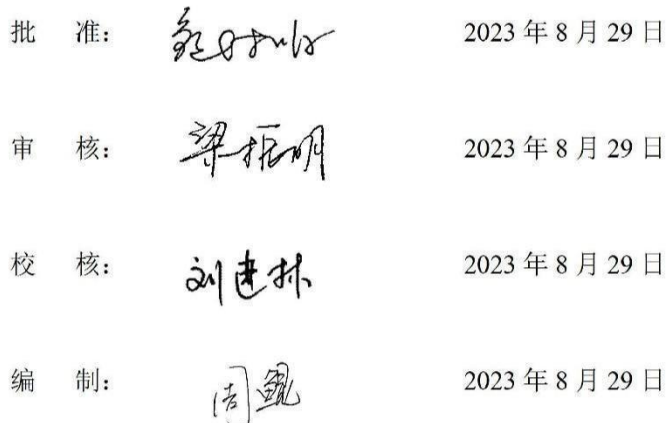 批 准: 2023 年 8 月 29 日
审 核: 梁振明 2023 年 8 月 29 日
校 核: 刘建林 2023 年 8 月 29 日
编 制: 周鲲 2023 年 8 月 29 日